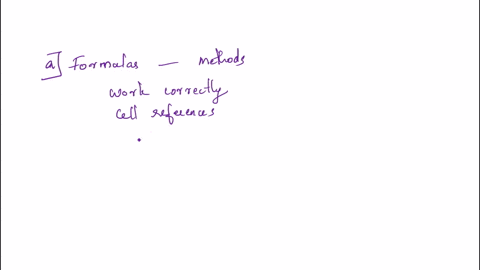 a] Formulas — methods
work correctly
cell references